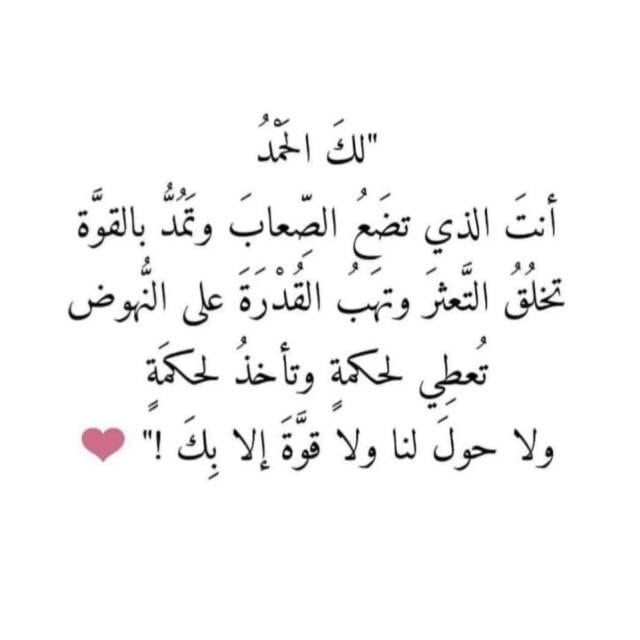 "لكَ الحَمْدُ
أنتَ الذي تضَعُ الصِّعابَ وتَمُدُّ بالقوَّة
تخلُقُ التَّعثرَ وتهَبُ القُدْرَةَ على النُّهوض
تُعطِي لحكمةٍ وتأخذُ لحكمَةٍ
ولا حولَ لنا ولا قوَّةَ إلا بِكَ !" ❤